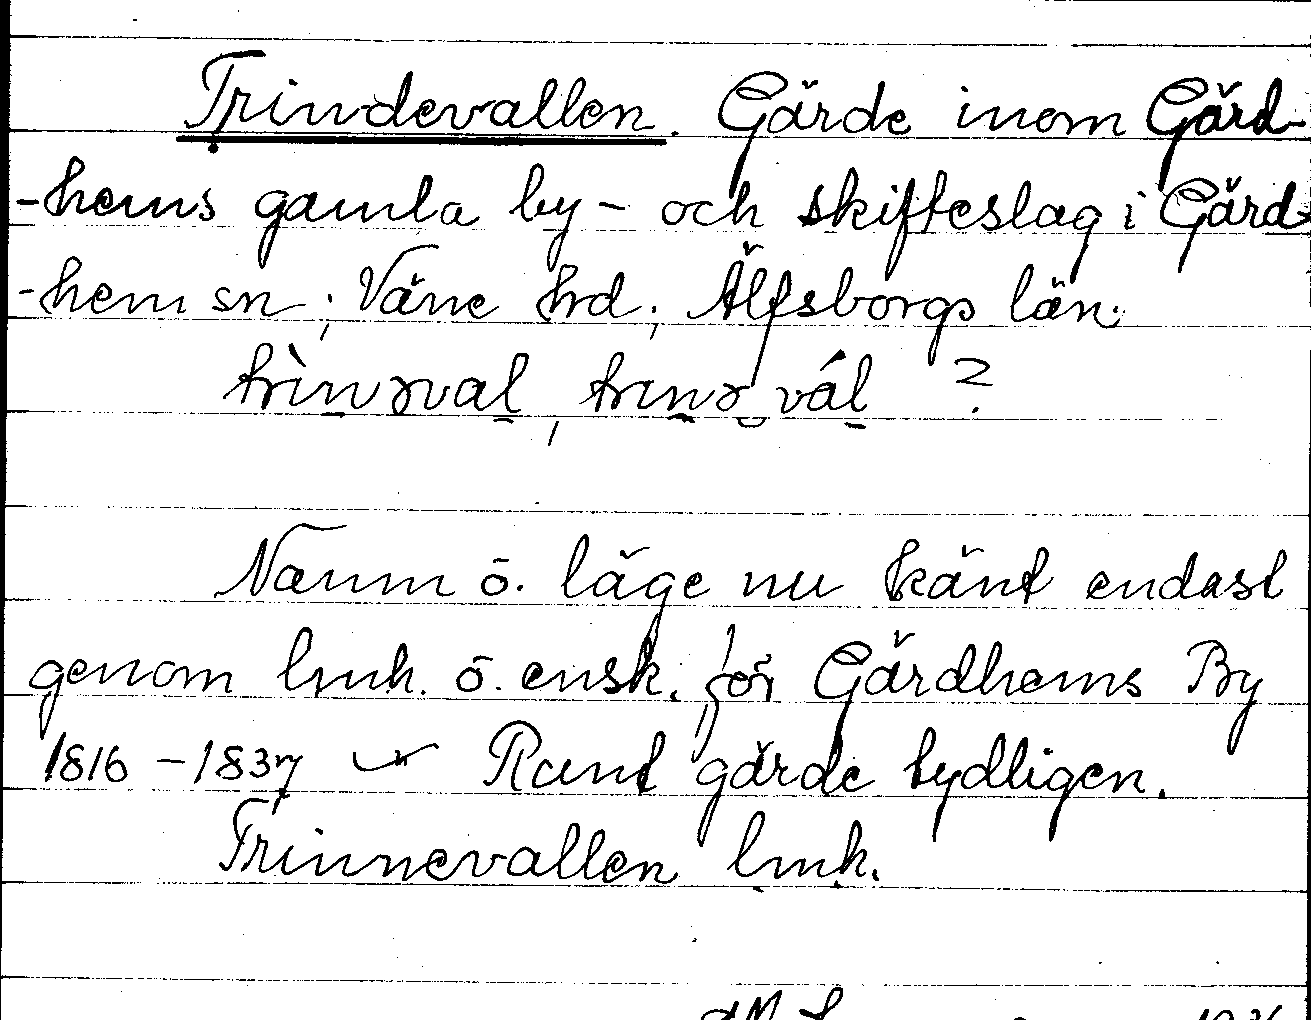 Trindevallen. Gärde inom Gärd-
-hems gamla by- och skifteslag i Gärd-
-hem sn; Väne hd; Älfsborgs län.
trìnəval, trinə vál ?
Namn o. läge nu känt endast
genom lmh. o. ensk. för Gärdhems By
1816-1837 Runt gärde tydligen.
Trinnevallen lmh.